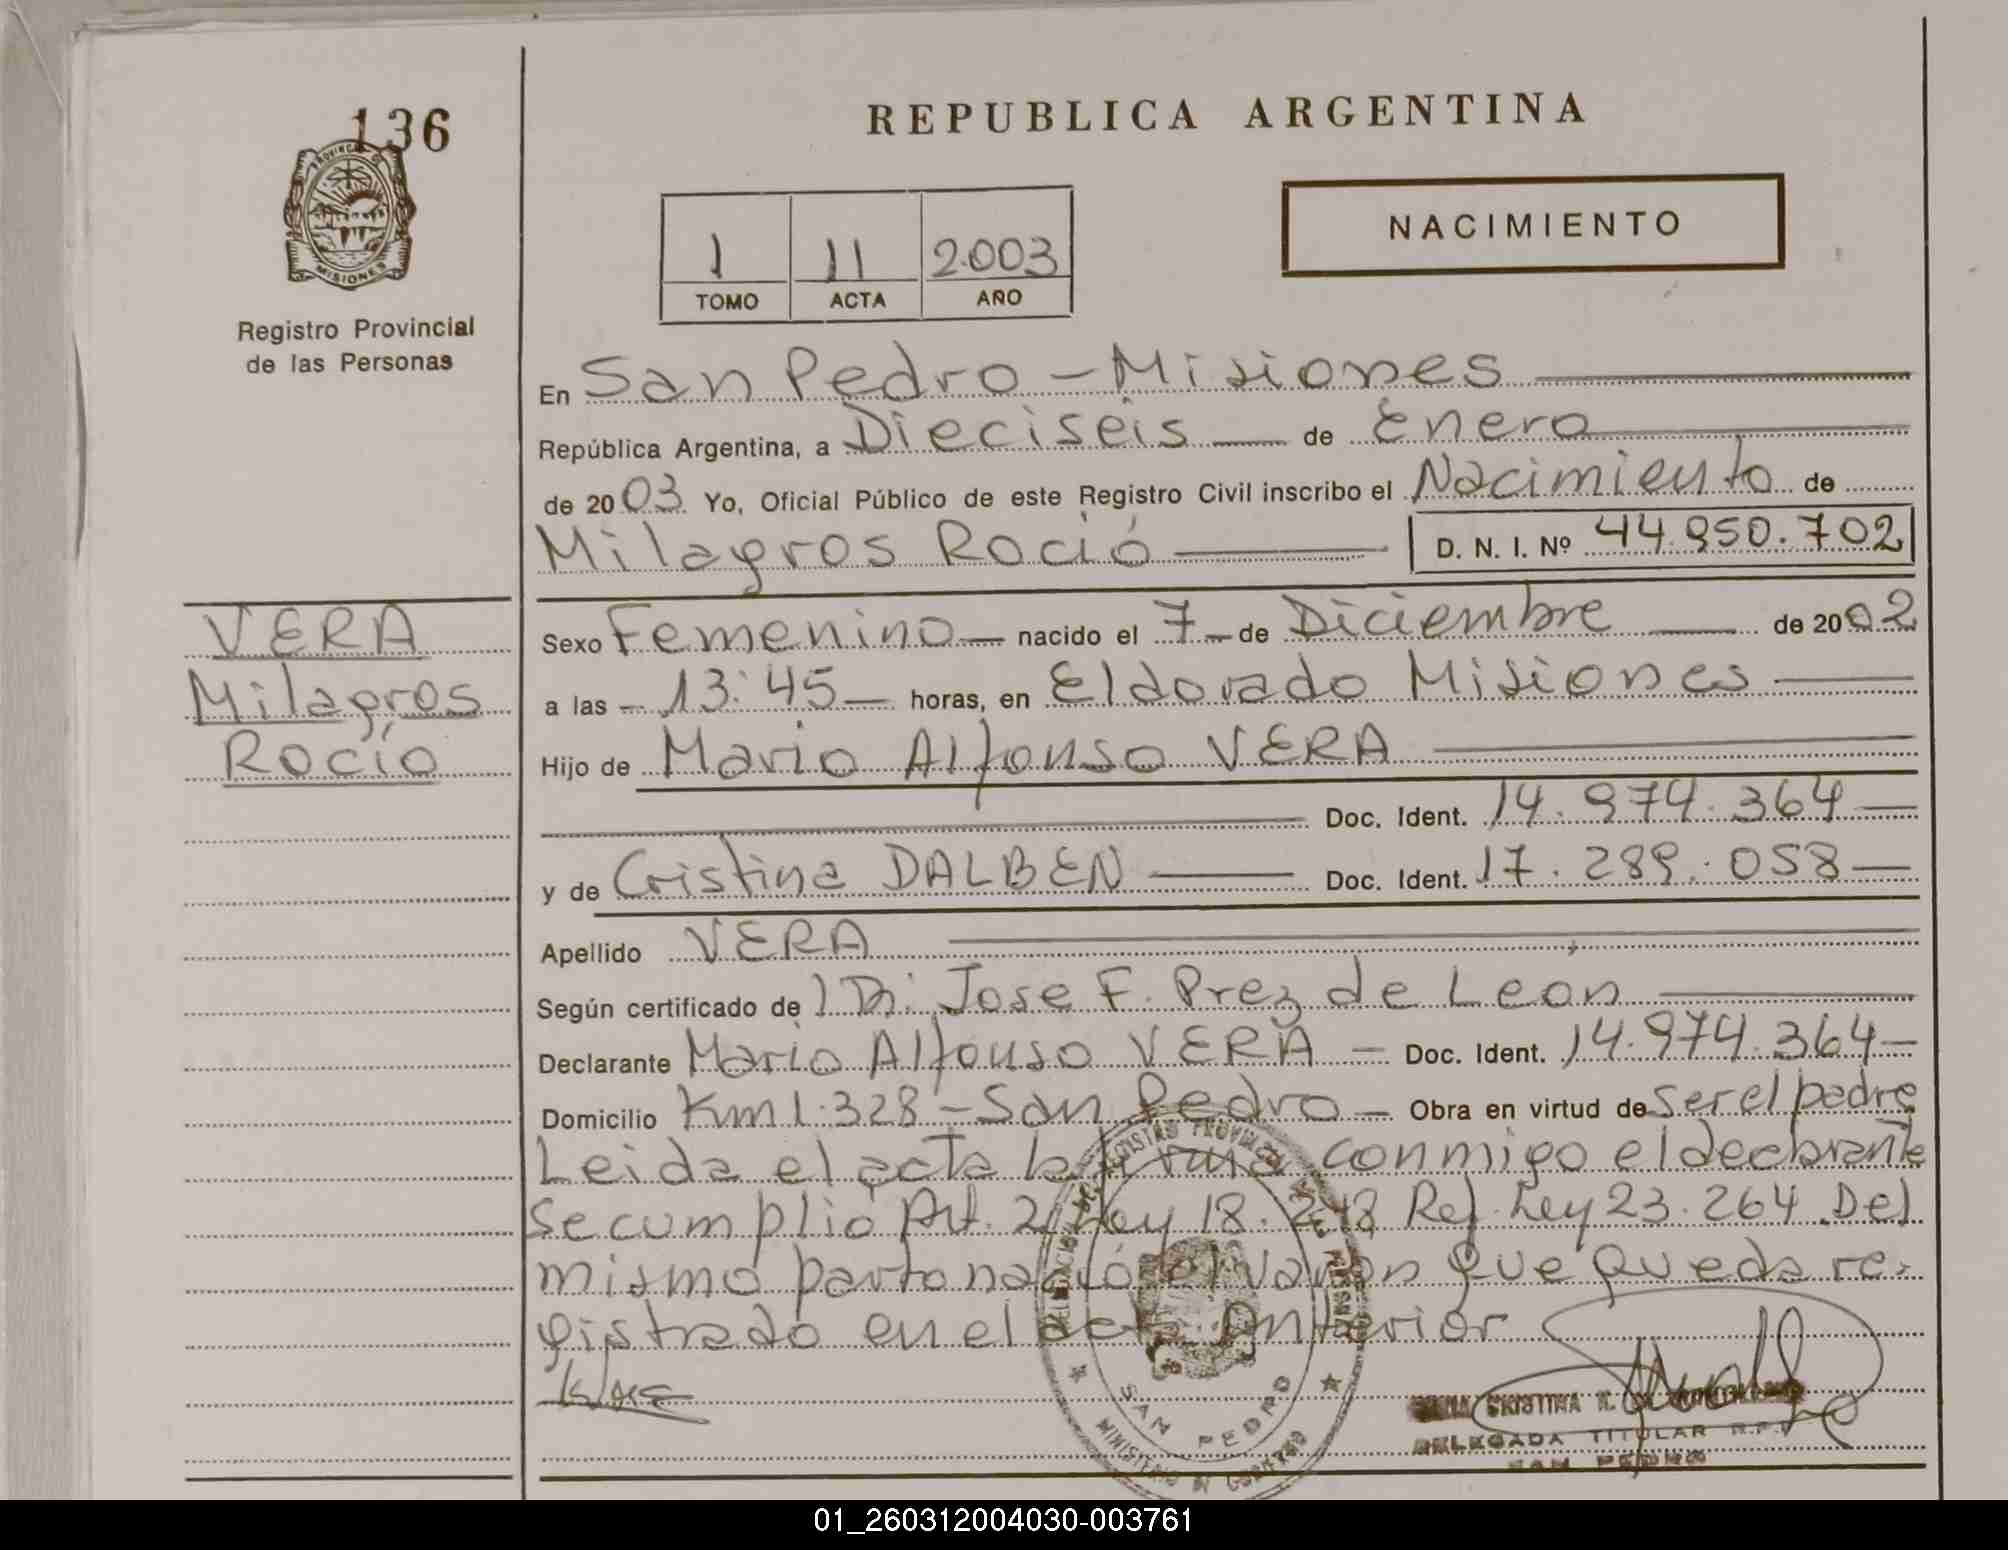 136
REPUBLICA ARGENTINA
PROVINCIA DE MISIONES
Registro Provincial
de las Personas
1 11 2.003
TOMO ACTA AÑO
NACIMIENTO
En San Pedro - Misiones
República Argentina, a Dieciseis de Enero
de 2003 Yo, Oficial Público de este Registro Civil inscribo el Nacimiento de
Milagros Roció D. N. I. Nº 44.950.702
VERA
Milagros
Rocío
Sexo Femenino nacido el 7 de Diciembre de 2002
a las 13:45 horas, en Eldorado Misiones
Hijo de Mario Alfonso VERA
Doc. Ident. 14.974.364
y de Cristina DALBEN Doc. Ident. 17.289.058
Apellido VERA
Según certificado de Jose F. Prez de León
Declarante Mario Alfonso VERA - Doc. Ident. 14.974.364
Domicilio Km 1.328 - San Pedro - Obra en virtud de ser el padre
Leida el acta la firma conmigo el declarante
se cumplió Art. 2 Ley 18.248 Ref. Ley 23.264 Del
mismo parto nació el varon que queda re-
gistrado en el acta anterior
SAN PEDRO
CRISTINA
DELEGADA TITULAR R.P.
SAN PEDRO
01_260312004030-003761